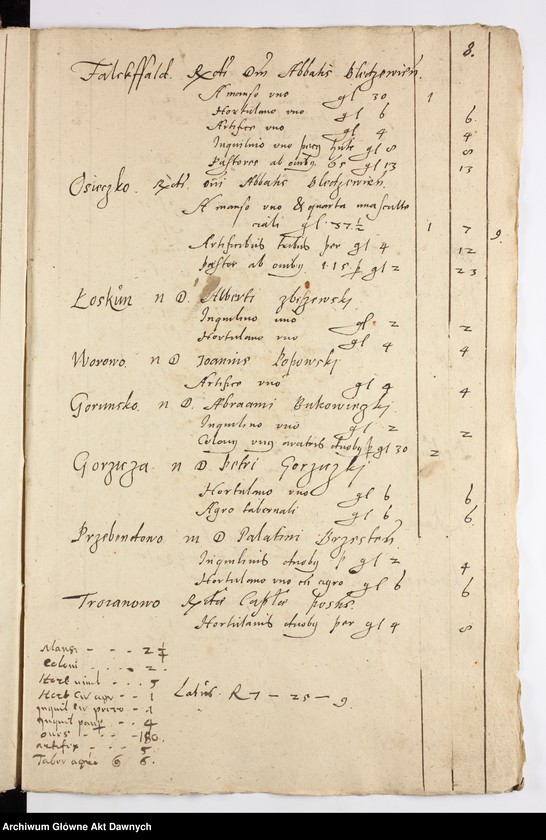 8.
Falckffald. Rdi Dni Abbatis Bledzewien.
A manso vno gl 30 1
Hortulano vno gl 6 6
Artifice vno gl 4 4
Inquilino vno gl 8 8
Pastores ab ouiby 65 gl 13 13
Osieczko. Rdi Dni Abbatis Bledzewien.
A manso vno & quarta
gl. 37 ½ 1 7 9
Artificibus tribus per gl 4 12
Pastor ab ouiby 115 p gl 2 23
Łoskun n D. Alberti Zbiszewskj
Inquilino uno gl. 2 2
Hortulano vno gl 4 4
Worowo n D Joannis Popowskj
Artifice vno gl 4 4
Gorunsko n D. Abraami Bukowieczkj
Inquilino vno gl 2 2
Colony vny aratris duoby p gl 30 2
Gorzicza n D Petri Gorziczkj
Hortulano vno gl 6 6
Agro tabernali gl 6 6
Przebendowo m D Palatini Brzesten
Inquilinis duoby p gl 2 4
Hortulano vno cu agro gl 6 6
Troianowo Posn.
Hortulanis duoby per gl 4 8
Mansi - - - 2 ¼
Coloni - - - 2.
5
Hort cu agr - - 1
Inquil cu - - 1
Inquil paup - - 4
oues - - - 180.
artifex - - - 5.
Taber agro 6.
Lateris R 7 - 25 - 9.
Archiwum Główne Akt Dawnych